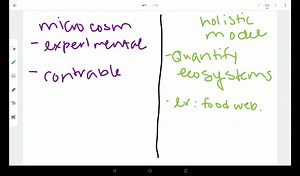 microcosm
- experimental
- contrable
holistic
model
- Quantify
ecosystems
- ex: food web.